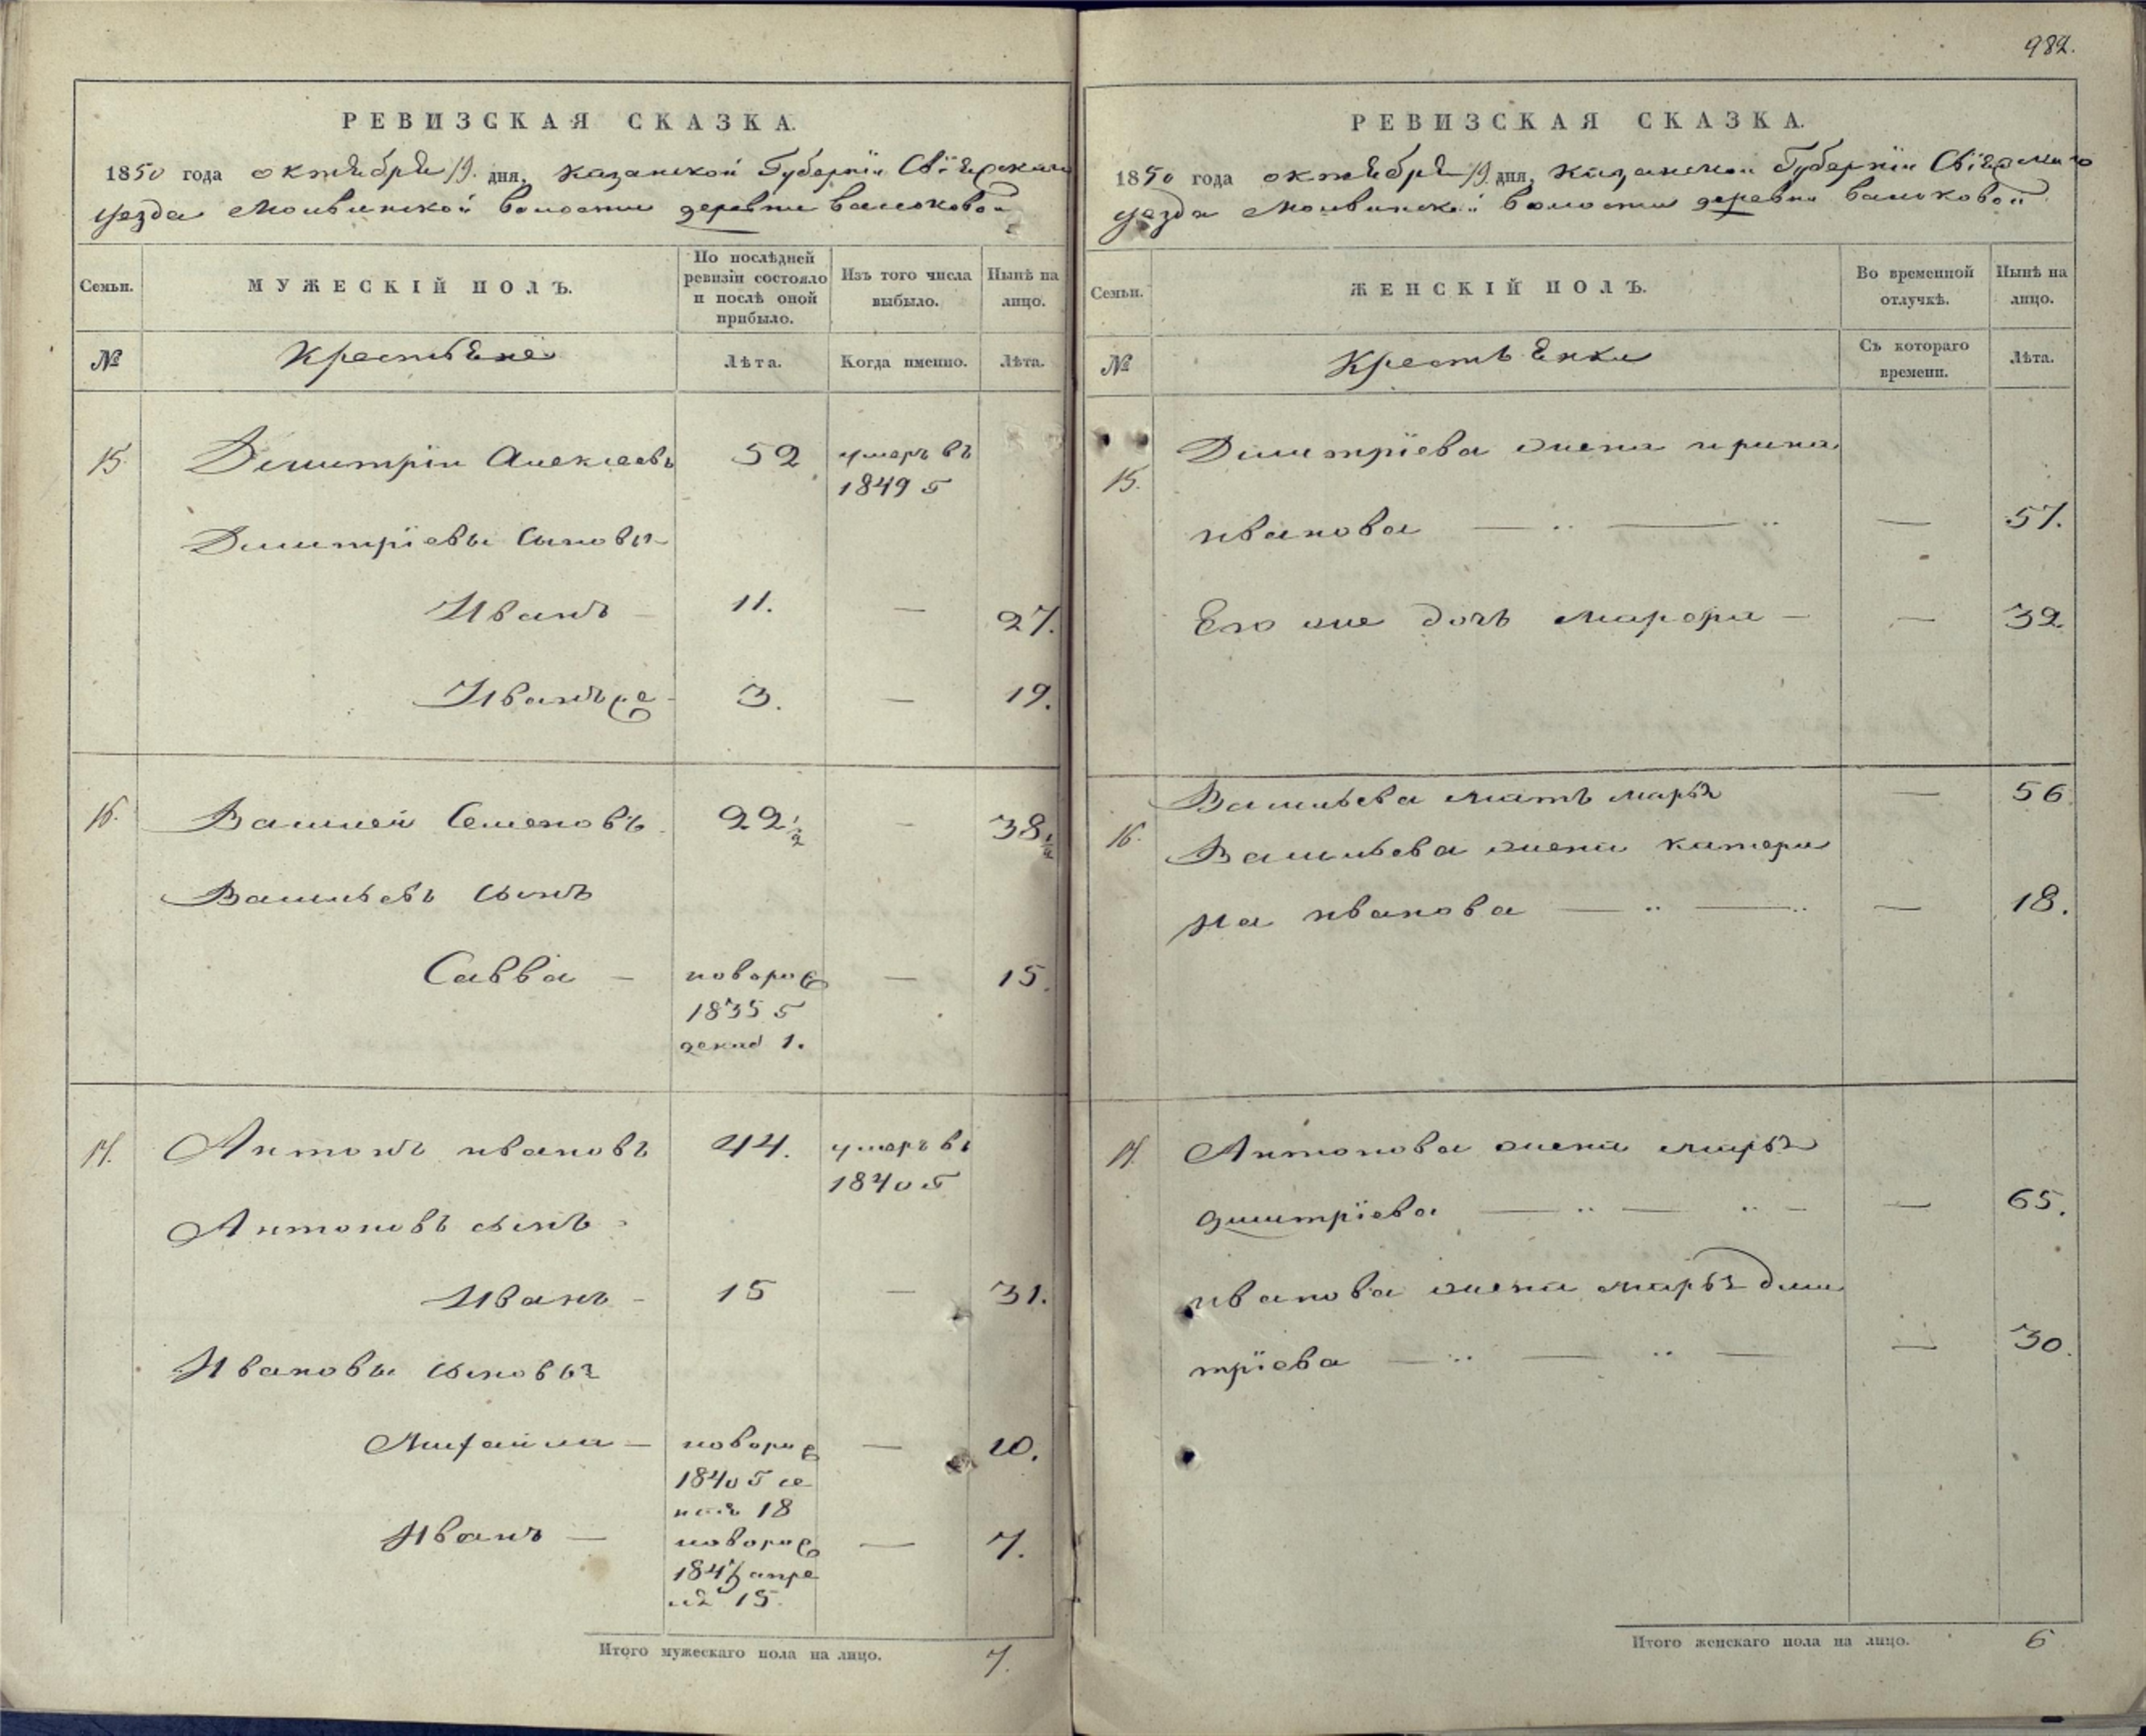 982.
РЕВИЗСКАЯ СКАЗКА.
1850 года октября 19. дня, Казанской Губернїи Свїяжскаго
уезда Молвинской волости деревни Васюковой
Семьи.
МУЖЕСКІЙ ПОЛЪ.
По послѣдней ревизіи состояло и послѣ оной прибыло.
Изъ того числа выбыло.
Нынѣ на лицо.
№
Крестьяне
Лѣта.
Когда именно.
Лѣта.
15. Димитрїи Алексеевъ 52 умеръ въ
1849 г
Димитрїевы сыновья
Иванъ — 11. — 27.
Иванъ 3. — 19.
16. Василей Семеновъ 22 1/2 — 38 1/2
Васильевъ сынъ
Савва —новоро 1835 г декаб 1. — 15.
17. Антонъ ивановъ 44. умеръ въ
1840 г
Антоновъ сынъ
Иванъ — 15 — 31.
Ивановы сыновья
Михаила — новоро 1840 г се
18 — 10.
Иванъ — новоро апре
ля 15. — 7.
Итого мужескаго пола на лицо. 7.
РЕВИЗСКАЯ СКАЗКА.
1850 года октября 19 дня, Казанской Губернїи Свїяжскаго
уезда Молвинской волости деревни Васюковой
Семьи.
ЖЕНСКІЙ ПОЛЪ.
Во временной отлучкѣ.
Нынѣ на лицо.
№
Крестьянки
Съ котораго времени.
Лѣта.
15. Димитрїева жена ирина
иванова — — — 57.
Его же дочь марфа — — 32.
16. Васильева мать марья — 56
Васильева жена катери
на иванова — — — 18.
17. Антонова жена марья
димитрїева — — — — 65.
иванова жена марья дми
трїева — — — — 30.
Итого женскаго пола на лицо. 6